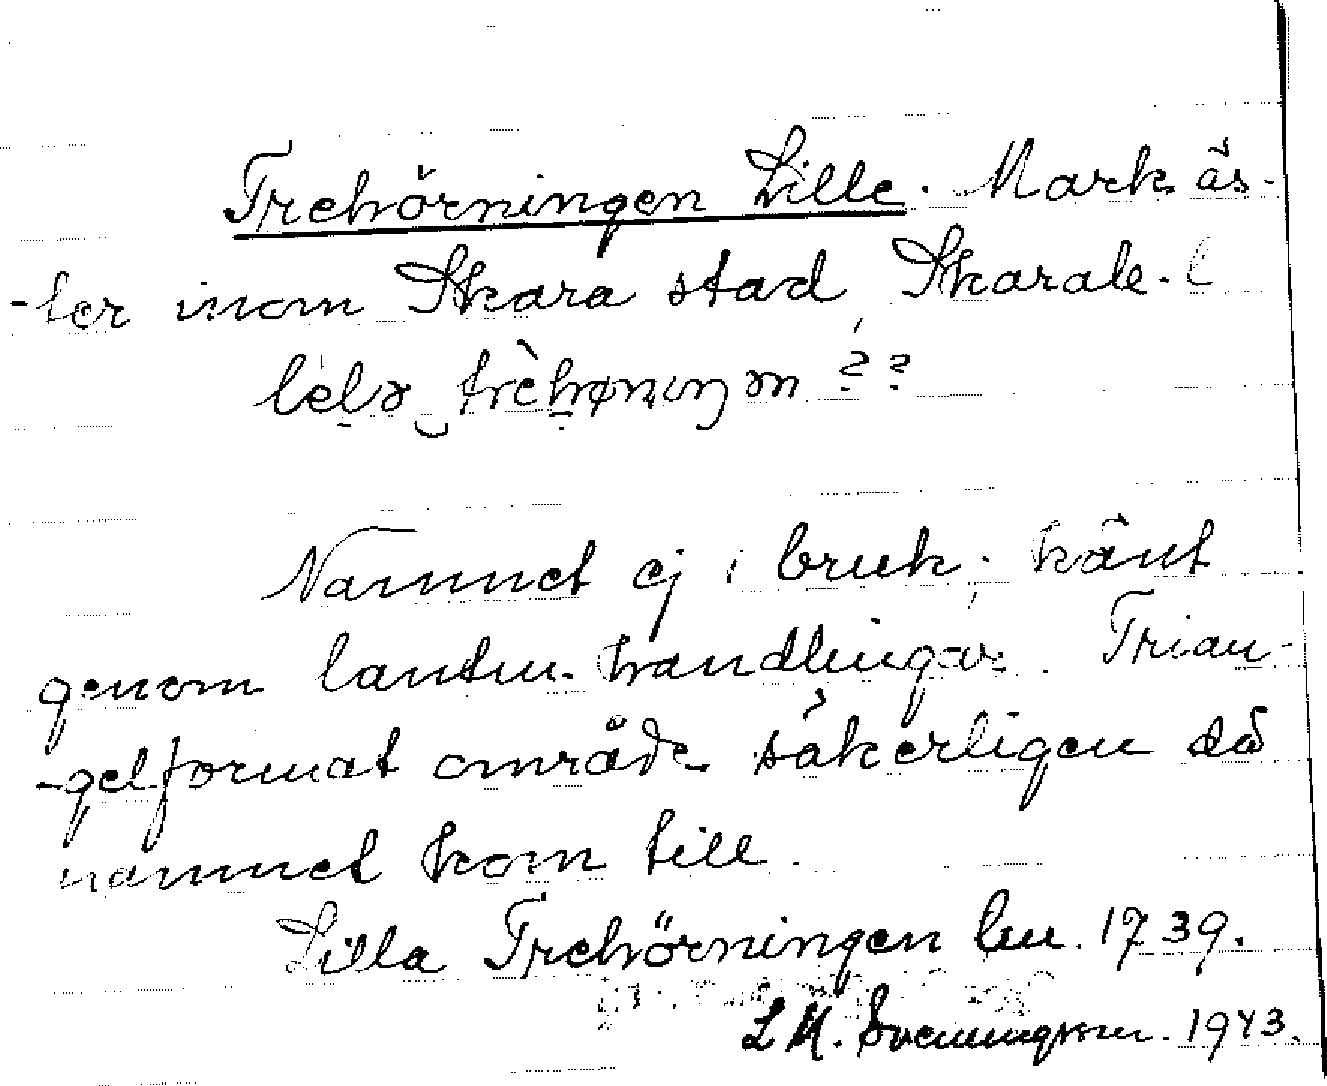 Trehörningen Lille. Mark ås-
-ter inom Skara stad, Skarab. l
Namnet ej i bruk; känt
genom lantm. handlingar. Trian-
-gelformat område säkerligen då
namnet kom till.
Lilla Trehörningen lm. 1739.
L M. Svenningsson. 1943.